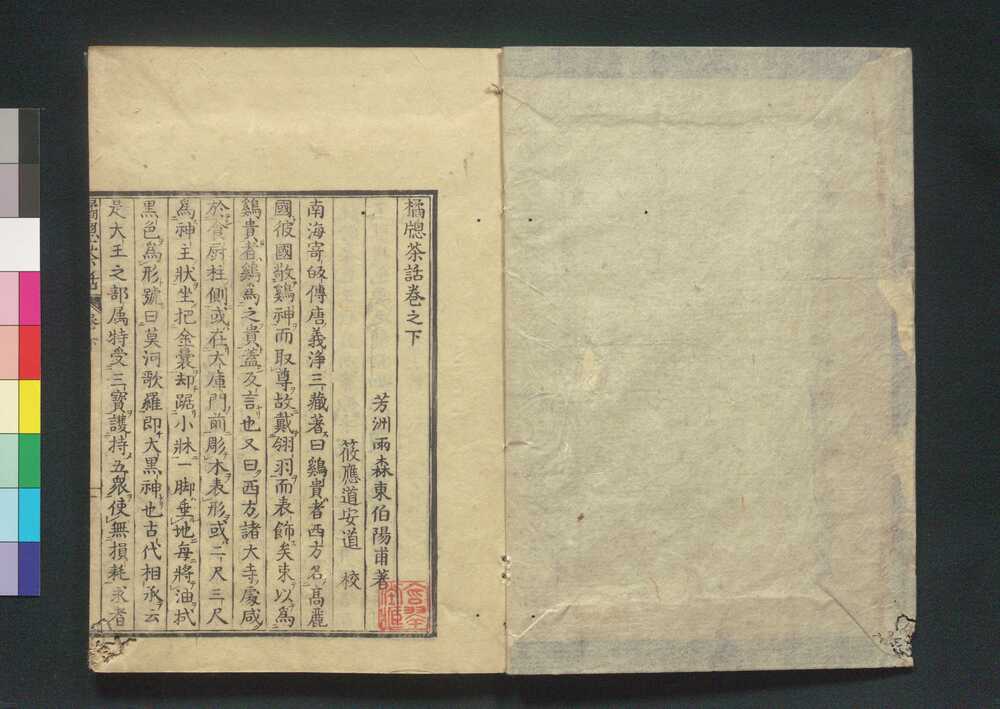 橘牎茶話卷之下
芳洲雨森東伯陽甫著
筱應道安道 校
南海寄皈傳唐義淨三藏著曰鷄貴者西方名高麗
國彼國敬鷄神而取尊故戴翎羽而表飾矣朿以爲
鷄貴者鷄爲之貴蓋及言也又曰西方諸大寺處咸
於食厨柱側或在大庫門前彫木表形或二尺三尺
爲神主狀坐把金囊却踞小牀一脚垂地每將油拭
黒色爲形號曰莫河歌羅卽大黒神也古代相承云
是大王之部属特受三寶護持五衆使無損耗求者
橘牎茶話